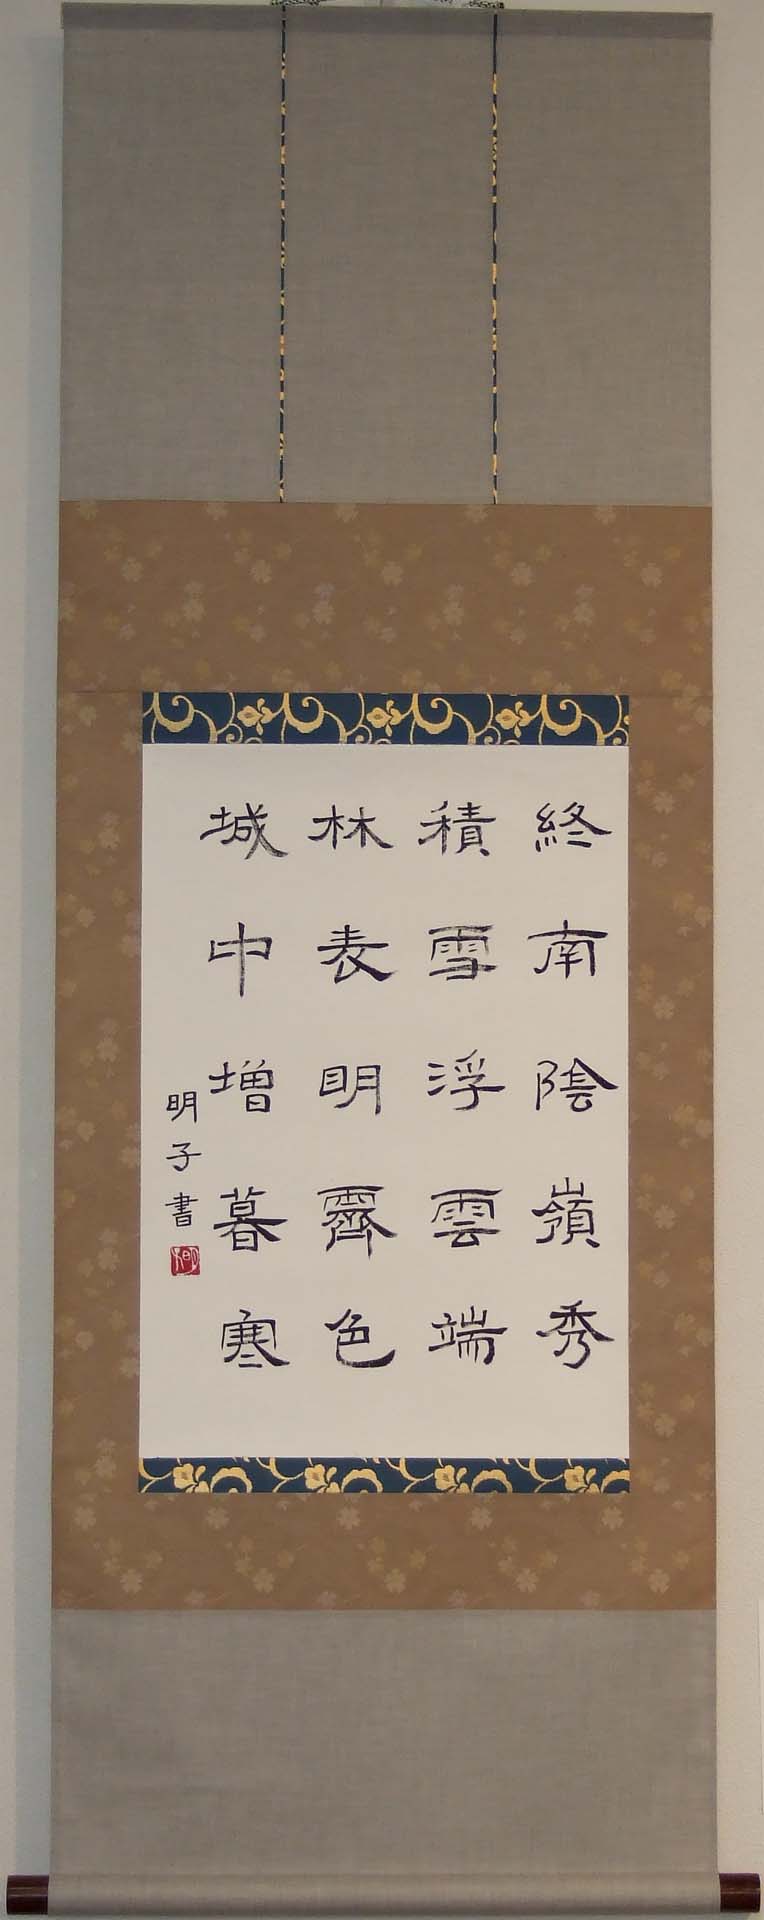 終南陰嶺秀
積雪浮雲端
林表明霽色
城中増暮寒
明子書